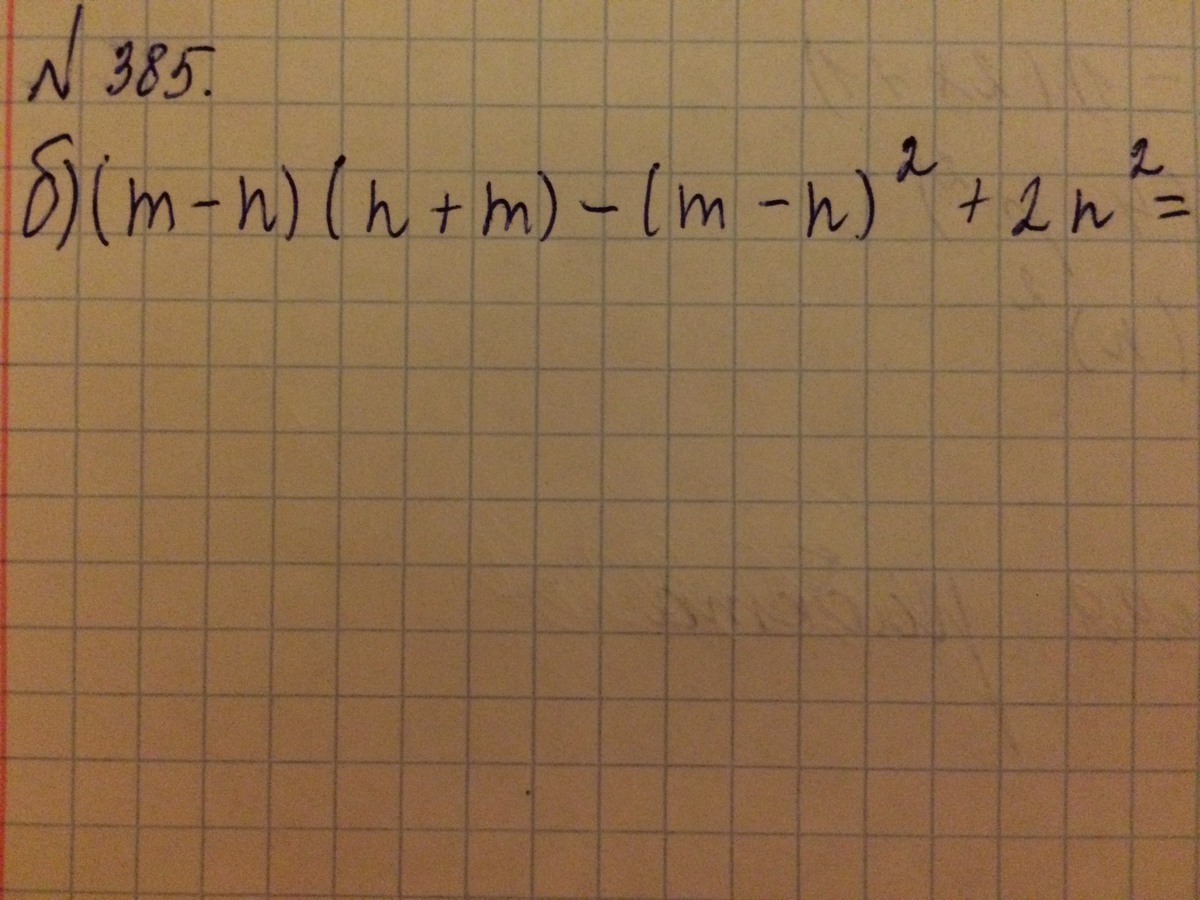 № 385.
б) (m - n) (n + m) - (m - n)² + 2n² =